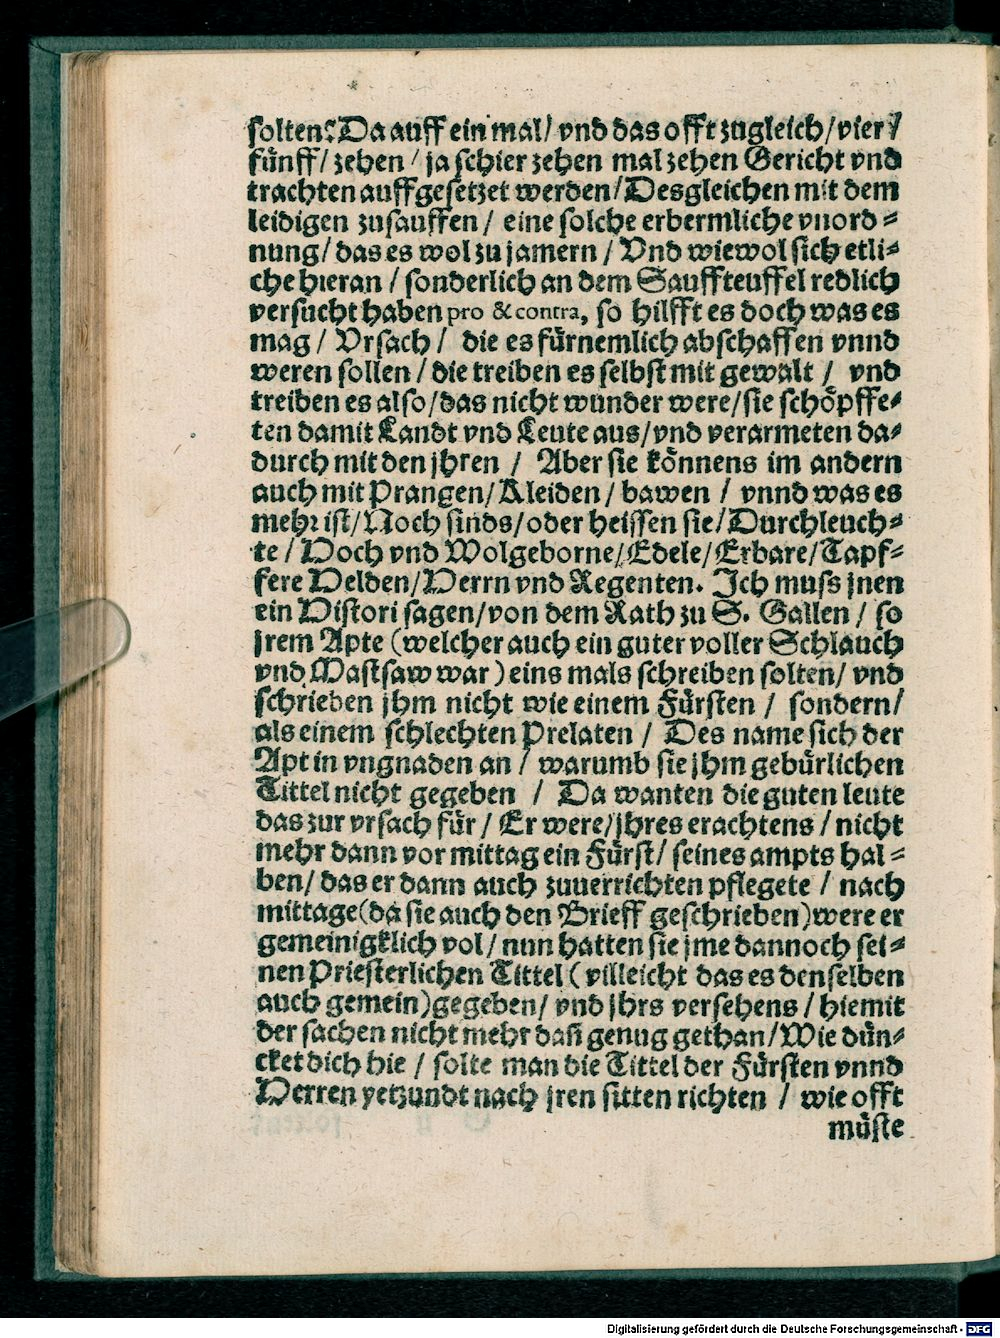 solten? Da auff ein mal/ vnd das offt zugleich/ vier/
fünff/ zehen/ ja schier zehen mal zehen Gericht vnd
trachten auffgesetzet werden/ Desgleichen mit dem
leidigen zusauffen/ eine solche erbermliche vnord=
nung/ das es wol zu jamern/ Vnd wiewol sich etli=
che hieran/ sonderlich an dem Sauffteuffel redlich
versucht haben pro & contra, so hilfft es doch was es
mag/ Vrsach/ die es fürnemlich abschaffen vnnd
weren sollen/ die treiben es selbst mit gewalt/ vnd
treiben es also/ das nicht wunder were/ sie schöpffe=
ten damit Landt vnd Leute aus/ vnd verarmeten da=
durch mit den jhren/ Aber sie könnens im andern
auch mit Prangen/ Kleiden/ bawen/ vnnd was es
mehr ist/ Noch sinds/ oder heissen sie/ Durchleuch=
te/ Hoch vnd Wolgeborne/ Edele/ Erbare/ Tapf=
fere Helden/ Herrn vnd Regenten. Ich muss jnen
ein Histori sagen/ von dem Rath zu S. Gallen/ so
jrem Apte (welcher auch ein guter voller Schlauch
vnd Mastsaw war) eins mals schreiben solten/ vnd
schrieben jhm nicht wie einem Fürsten/ sondern/
als einem schlechten Prelaten/ Des name sich der
Apt in vngnaden an/ warumb sie jhm gebürlichen
Tittel nicht gegeben/ Da wanten die guten leute
das zur vrsach für/ Er were/ jhres erachtens/ nicht
mehr dann vor mittag ein Fürst/ seines ampts hal=
ben/ das er dann auch zuuerrichten pflegete/ nach
mittage (da sie auch den Brieff geschrieben) were er
gemeinigklich vol/ nun hatten sie jme dannoch sei=
nen Priesterlichen Tittel (villeicht das es denselben
auch gemein) gegeben/ vnd jhrs versehens/ hiemit
der sachen nicht mehr dañ genug gethan/ Wie dün=
cket dich hie/ solte man die Tittel der Fürsten vnnd
Herren yetzundt nach jren sitten richten/ wie offt
müste
Digitalisierung gefördert durch die Deutsche Forschungsgemeinschaft - DFG